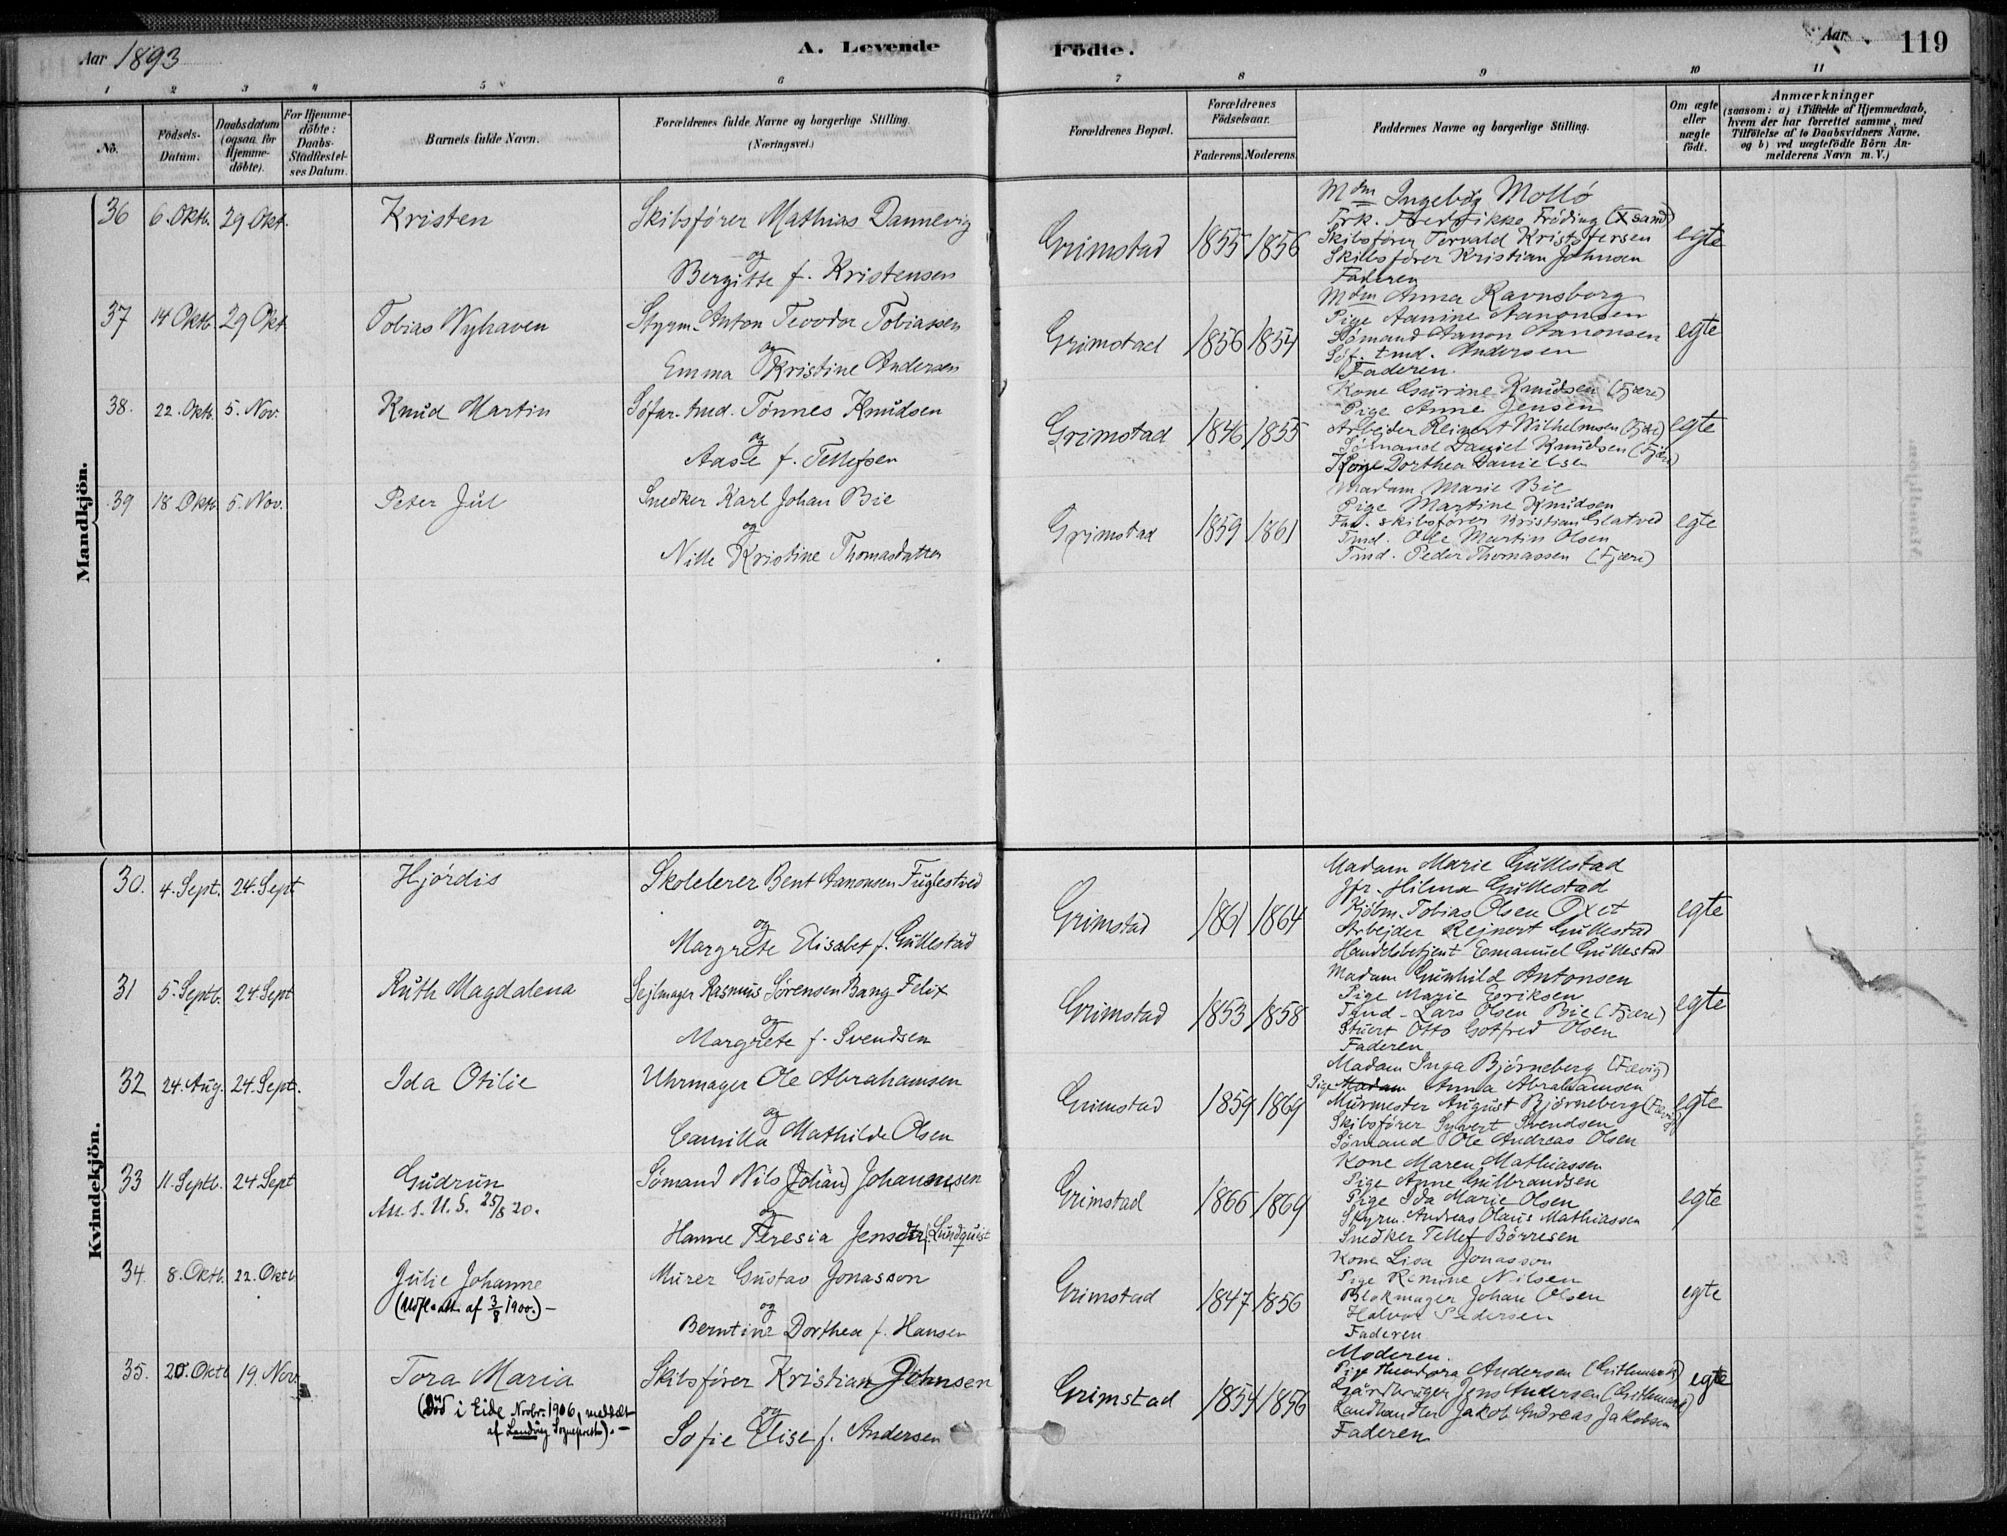 Aar 1893
A. Levende
Födte.
Aar
119
1 2 3 4 5 6 7 8 9 10 11
No.
Födsels-
Datum.
Daabsdatum
(ogsaa for
Hjemme-
döbte).
For Hjemme-
döbte:
Daabs-
Stadfæstel-
ses Datum.
Barnets fulde Navn.
Forældrenes fulde Navne og borgerlige Stilling.
(Næringsvei.)
Forældrenes Bopæl.
Forældrenes
Födselsaar.
Faderens. Moderens.
Faddernes Navne og borgerlige Stilling.
Om ægte
eller
uægte
födt.
Anmærkninger
(saasom: a) i Tilfælde af Hjemmedaab,
hvem der har forrettet samme, med
Tilföielse af to Daabsvidners Navne,
og b) ved uægtefödte Börn An-
melderens Navn m. V.)
Mandkjön.
36 6. Oktb. 29 Okt. Kristen
Skibsfører Mathias Dannevig
og
Bergitte f. Kristensen
Grimstad 1855 1856
Mdm Ingebög Mollö
Frk. Fredrikke Fröding (X sand)
Skibsfører Torvald Kristofersen
Skibsfører Kristian Johnsen
Faderen
egte
37 14 Oktb. 29 Okt. Tobias Nyhaven
Styrm. Anton Teodor Tobiassen
og
Emma Kristine Andersen
Grimstad 1856 1854
Mdm Anna Ravnsborg
Pige Aanine Aanonsen
Sømand Aanon Aanonsen
Söf. tmd. Andersen
Faderen.
egte
38. 22. Oktb. 5. Nov. Knud Martin
Söfar. tmd. Tönnes Knudsen
og
Aase f. Tellefsen
Grimstad 1846 1855
Kone Gurine Knudsen (Fjære)
Pige Anne Jensen
Arbejder Reinert Wilhelmsen (Fjære)
Sömand Daniel Knudsen (Fjære)
Kone Dorthea Danielsen
egte
39 18 Oktb. 5. Nov. Peter Jul
Snedker Karl Johan Bie
og
Nille Kristine Thomasdatter
Grimstad 1859 1861
Madam Marie Bie
Pige Martine Knudsen
Fhv. skibsfører Kristian Glatved
Tmd. Ole Martin Olsen
Tmd. Peder Thomassen (Fjære)
egte
Kvindekjön.
30. 4. Sept. 24. Sept Hjördis
Skolelerer Bent Aanonsen Fuglestved
og
Margrete Elisabet f. Gullestad
Grimstad 1861 1864
Madam Marie Gullestad
Jfr. Hilma Gullestad
Kjöbm. Tobias Olsen Oxet
Arbejder Rejnert Gullestad
Handelsbetjent Emanuel Gullestad
egte
31 5. Septb. 24 Sept Ruth Magdalena
Sejlmager Rasmus Sørensen Bang Felix
og
Margrete f. Svendsen
Grimstad 1853 1858
Madam Gunhild Antonsen
Pige Marie Eeriksen
Tmd. Lars Olsen Bie (Fjære)
Stuert Otto Gotfred Olsen
Faderen
egte
32 24. Aug. 24 Sept. Ida Otilie
Uhrmager Ole Abrahamsen
og
Camilla Mathilde Olsen
Grimstad 1859 1869
Madam Inga Björneberg (Fævig)
Pige Madam Anna Abrahamsen
Murmester August Björneberg (Fævig)
Skibsfører Syvert Svendsen
Sömand Ole Andreas Olsen
egte
33 11. Septb. 24 Sept Gudrun
Att. t. U. S. 25/8 20.
Sömand Nils (Johan) Johannesen
og
Hanne Teresia Jensdtr f. Lundquist
Grimstad 1866 1869
Kone Maren Mathiassen
Pige Anne Gulbrandsen
Pige Ida Marie Olsen
Styrm. Andreas Olaus Mathiassen
Snedker Tellef Börresen
egte
34. 8. Oktb. 22. Oktb Julie Johanne
(Udfl. att. af 3/8 1900.) –
Murer Gustav Jonasson
og
Berntine Dorthea f. Hansen
Grimstad 1847 1856
Kone Lisa Jonasson
Pige Remine Nilsen
Blokmager Johan Olsen
Halvor Pedersen
Faderen
egte
35. 20. Oktb 19. Nov. Tora Maria
(Död i Eide Novbr. 1906, meddelt
af Landvig Sogneprest). –
Skibsfører Kristian Johnsen
og
Sofie Elise f. Andersen
Grimstad 1854 1856
Moderen.
Pige Theodora Andersen (Githmark)
Gårdbruger Jens Andersen (Githmark)
Landhandler Jakob Andreas Jakobsen
Faderen
egte